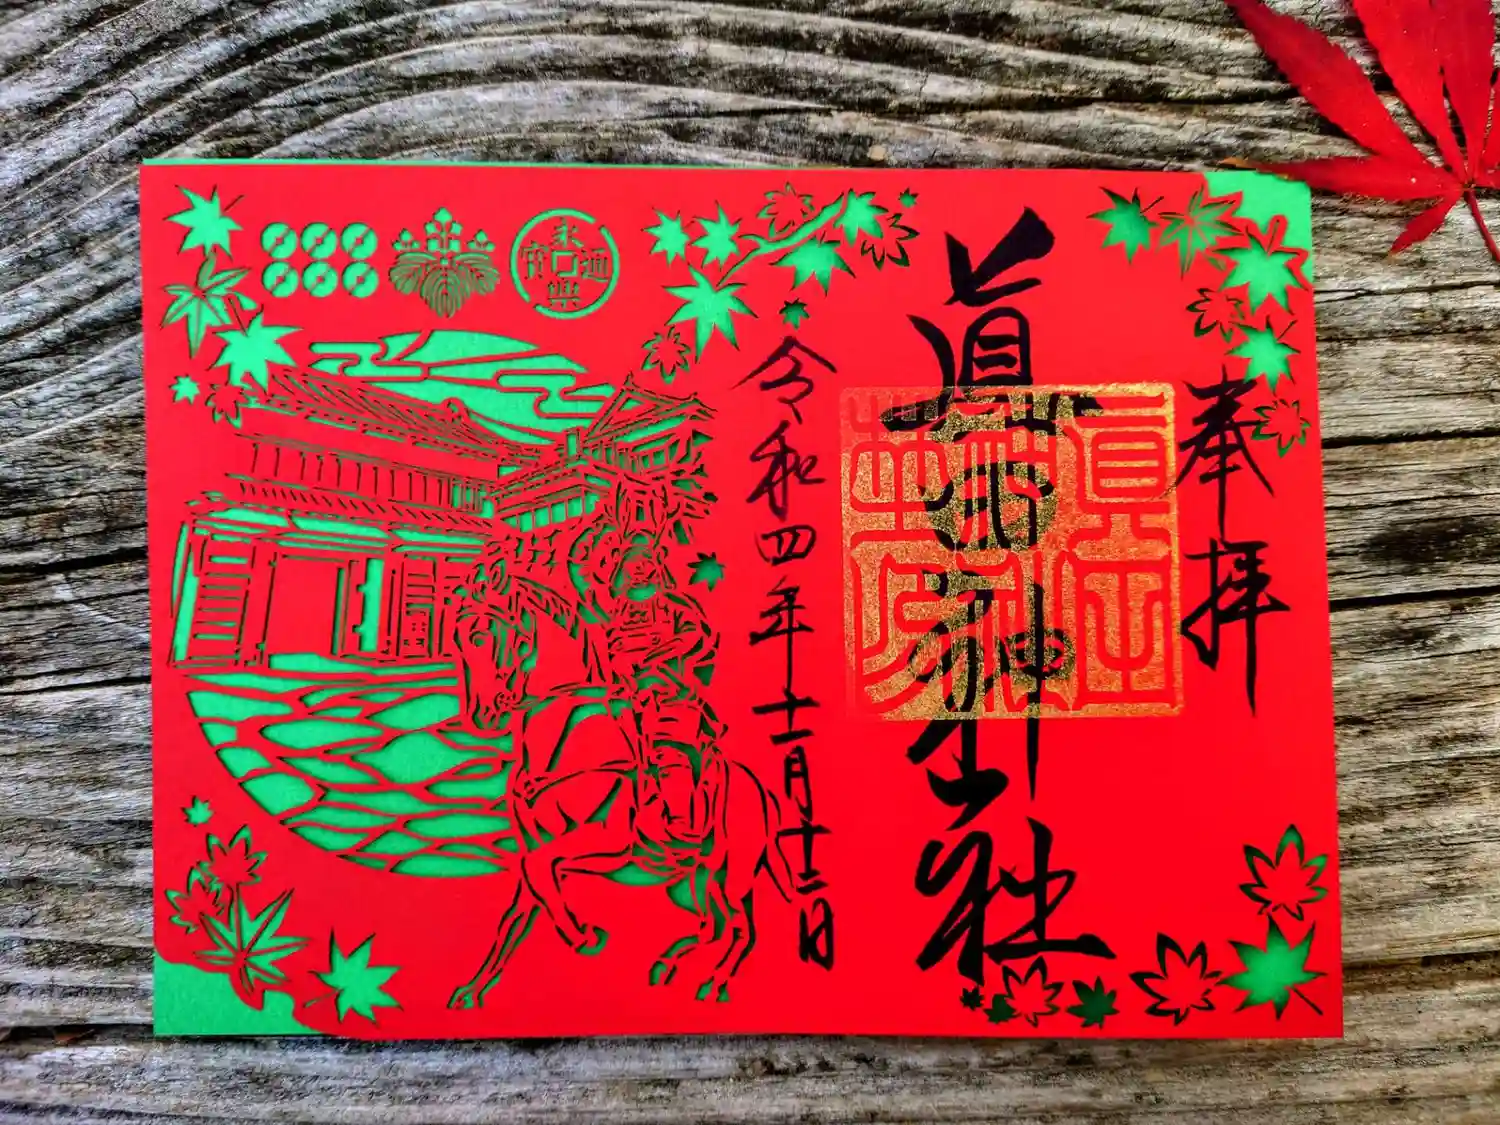 奉拝
眞田神社
眞田神社
令和四年十一月十二日
永樂通寳